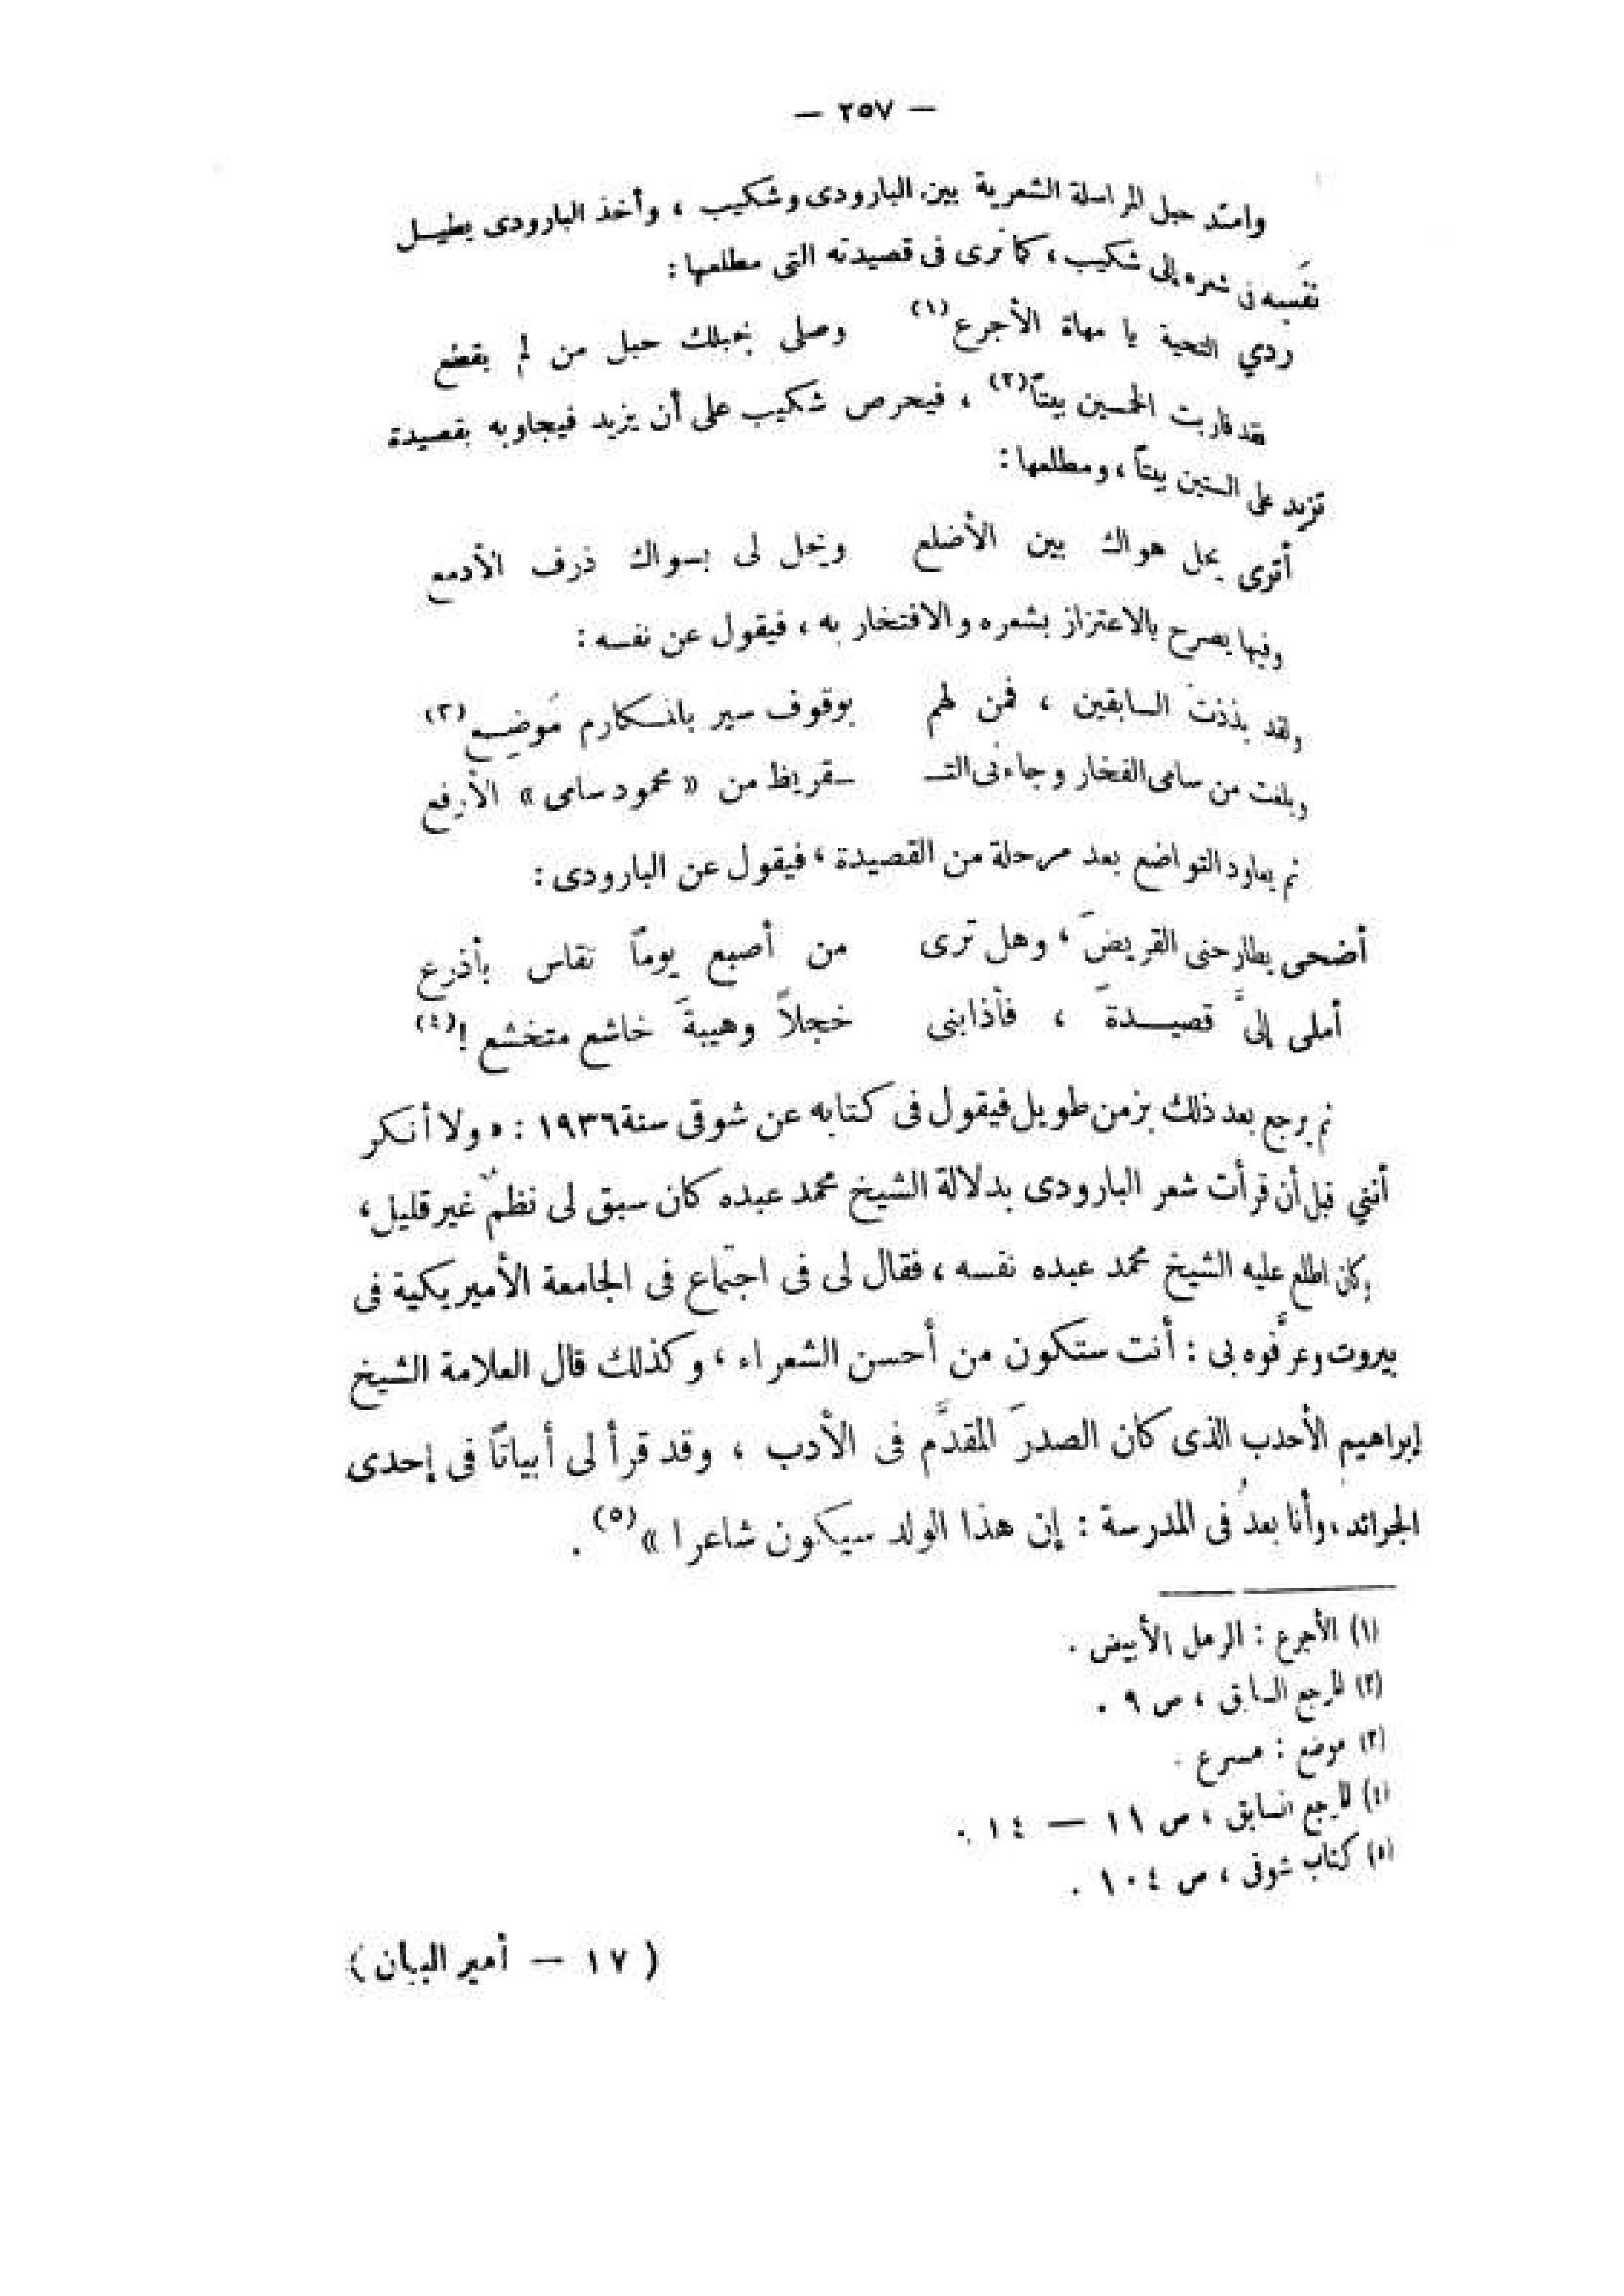 — ٢٥٧ —
وامتد حبل المراسلة الشعرية بين البارودى وشكيب ، وأخذ البارودى يطيـل
نفَسه فى شعره إلى شكيب ، كما نرى فى قصيدته التى مطلعها :
ردي التحية يا مهاة الأجرع (١) وصلى بحبلك حبل من لم يقطع
فقد قاربت الخمسين بيتاً (٢) ، فيحرص شكيب على أن يزيد فيجاوبه بقصيدة
تزيد على الستين بيتاً ، ومطلعها :
أترى يحل هواك بين الأضلع ويحل لى بسواك ذرف الأدمع
وفيها يصرح بالاعتزاز بشعره والافتخار به ، فيقول عن نفسه :
ولقد بذذتُ السابقين ، فمن لهم بوقوف سير بالمكارم مَوضِـع (٣)
وبلغت من سامى الفخار وجاءنى التـ ـقريظ من « محمود سامى » الأرفع
ثم يعاود التواضع بعد مرحلة من القصيدة ، فيقول عن البارودى :
أضحى يطارحنى القريضَ ، وهل ترى من أصبع يوماً تقاس بأذرع
أملى إلىَّ قصيـدةَ ، فأذابنى خجلاً وهيبةَ خاشع متخشع ! (٤)
ثم يرجع بعد ذلك بزمن طويل فيقول فى كتابه عن شوقى سنة ١٩٣٦ : « ولا أنكر
أننى قبل أن قرأت شعر البارودى بدلالة الشيخ محمد عبده كان سبق لى نظمٌ غير قليل ،
وكان اطلع عليه الشيخ محمد عبده نفسه ، فقال لى فى اجتماع فى الجامعة الأميريكية فى
بيروت وعرَّفوه بى : أنت ستكون من أحسن الشعراء ، وكذلك قال العلامة الشيخ
إبراهيم الأحدب الذى كان الصدرَ المقدَّم فى الأدب ، وقد قرأ لى أبياتاً فى إحدى
الجرائد ، وأنا بعدُ فى المدرسة : إن هذا الولد سيكون شاعرا » (٥) .
(١) الأجرع : الرمل الأبيض .
(٢) المرجع السابق ، ص ٩ .
(٣) موضع : مسرع .
(٤) المرجع السابق ، ص ١١ — ١٤ .
(٥) كتاب شوقى ، ص ١٠٤ .
( ١٧ — أمير البيان )